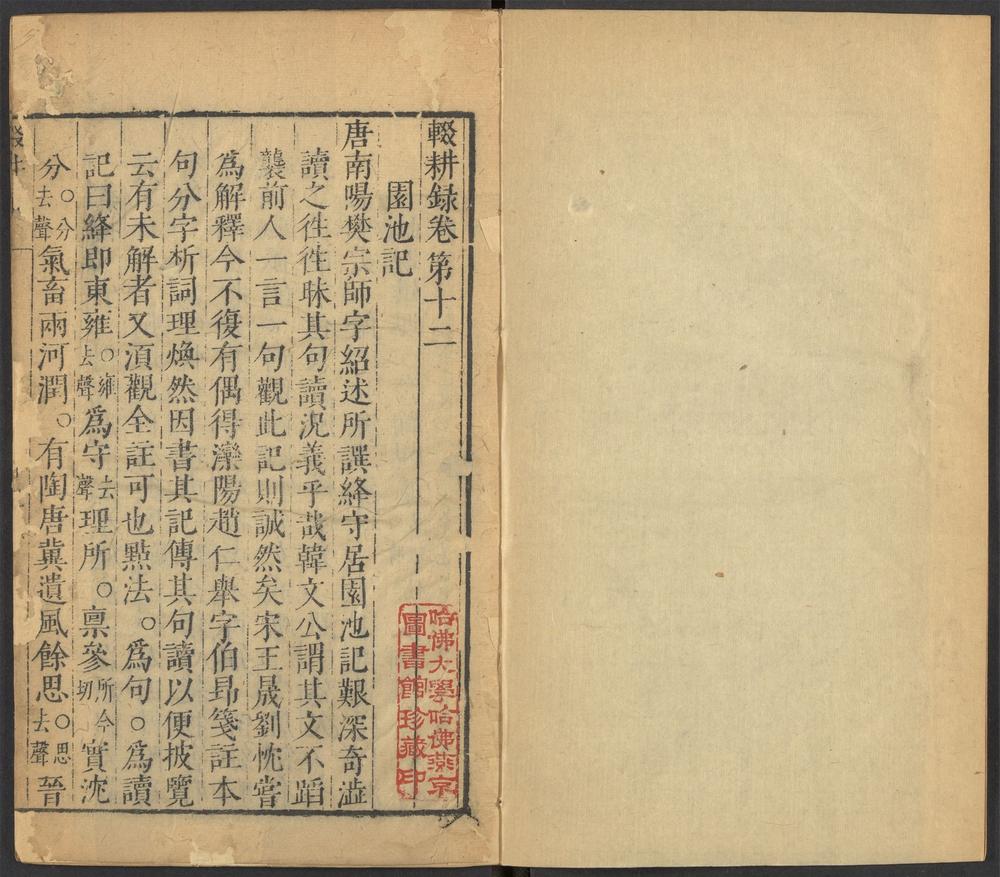 輟耕録卷第十二
園池記
唐南陽樊宗師字紹述所譔絳守居園池記艱深奇澁
讀之徃徃昧其句讀況義乎哉韓文公謂其文不蹈
襲前人一言一句觀此記則誠然矣宋王晟劉忱嘗
爲解釋今不復有偶得灤陽趙仁舉字伯昂箋註本
句分字析詞理煥然因書其記傳其句讀以便披覽
云有未解者又湏觀全註可也㸃法。爲句○爲讀
記曰絳即東雍○雍去聲爲守去聲理所。禀參所今切實沈
分○分去聲氣畜兩河潤。有陶唐冀遺風餘思○思去聲晉
哈佛大學哈佛燕京
圖書館珍藏印